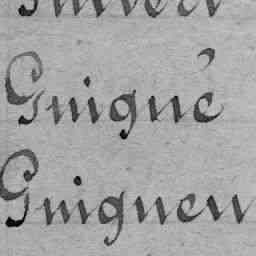 Guigué
Guigueu